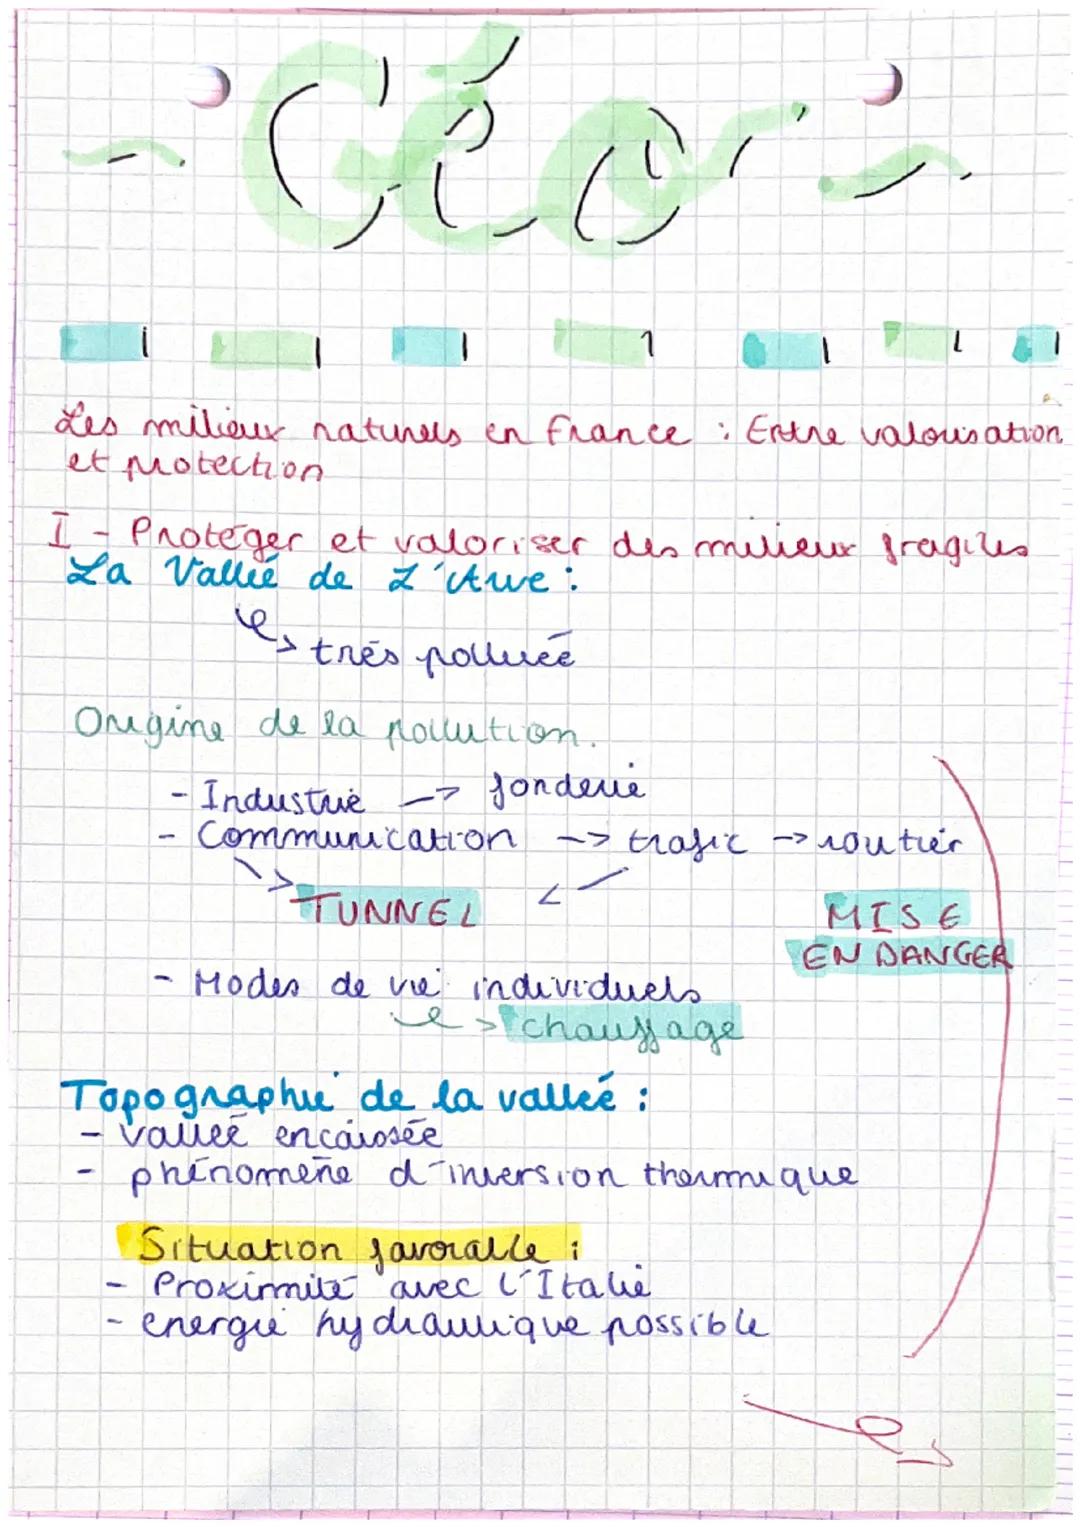 ~ Géo ~
Les milieux naturels en france : Entre valorisation
et protection
I - Protéger et valoriser des milieux fragiles
La Vallée de L'Arve :
très polluée
Origine de la pollution.
- Industrie -> fonderie
- Communication -> trafic -> routier
TUNNEL
MISE
EN DANGER
- Modes de vie individuels
chauffage
Topographie de la vallée :
- vallée encaissée
- phénomène d'inversion thermique
Situation favorable :
- Proximité avec l'Italie
- energie hydraulique possible